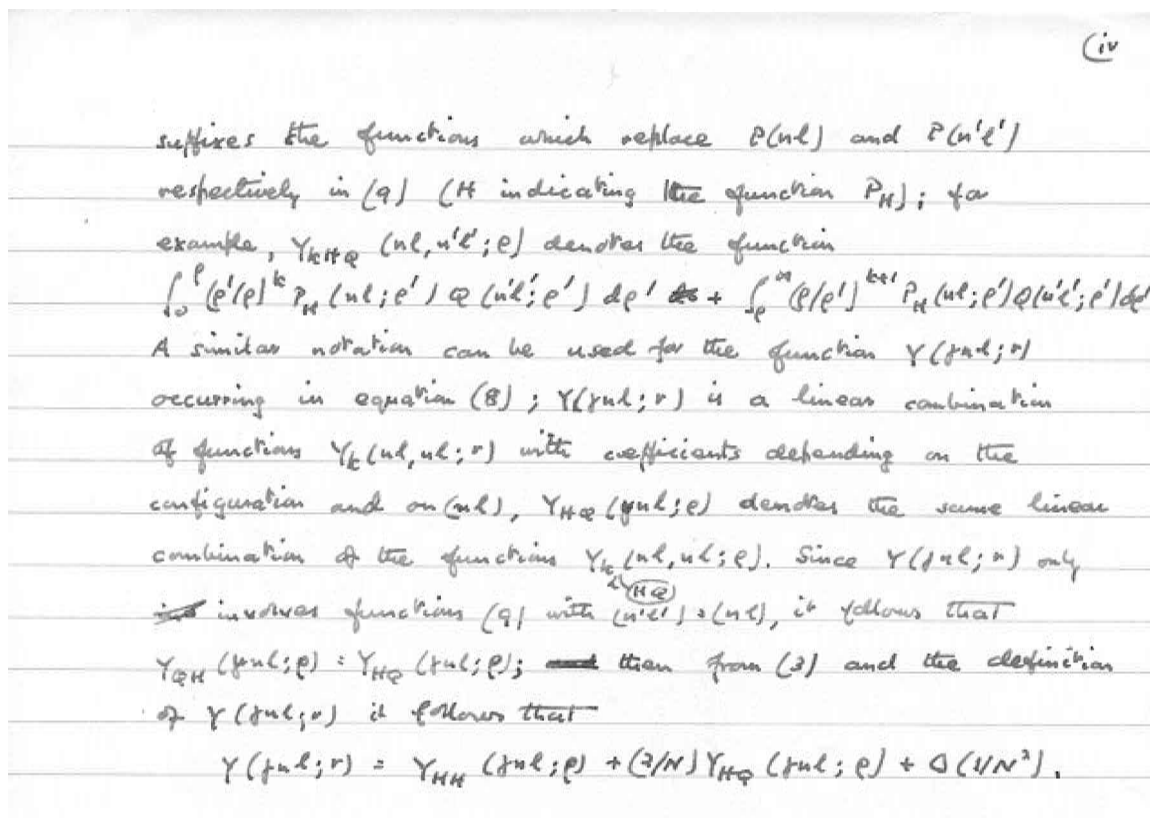 (iv
suffixes the functions which replace P(nl) and P(n'l')
respectively in (9) (H indicating the function P_H); for
example, Y_{kHQ} (nl, n'l'; ρ) denotes the function
∫_0^ρ (ρ'/ρ)^k P_H (nl; ρ') Q (n'l'; ρ') dρ' + ∫_ρ^∞ (ρ/ρ')^{k+1} P_H (nl; ρ') Q(n'l'; ρ') dρ'
A similar notation can be used for the function Y(γnl; r)
occurring in equation (8); Y(γnl; r) is a linear combination
of functions Y_k (nl, nl; r) with coefficients depending on the
configuration and on (nl), Y_{HQ} (γnl; ρ) denotes the same linear
combination of the functions Y_k (nl, nl; ρ). Since Y(γnl; r) only
HQ
involves functions (9) with (n'l') = (nl), it follows that
Y_{QH} (γnl; ρ) = Y_{HQ} (γnl; ρ); then from (3) and the definition
of Y(γnl; r) it follows that
Y(γnl; r) = Y_{HH} (γnl; ρ) + (2/N) Y_{HQ} (γnl; ρ) + O(1/N²).